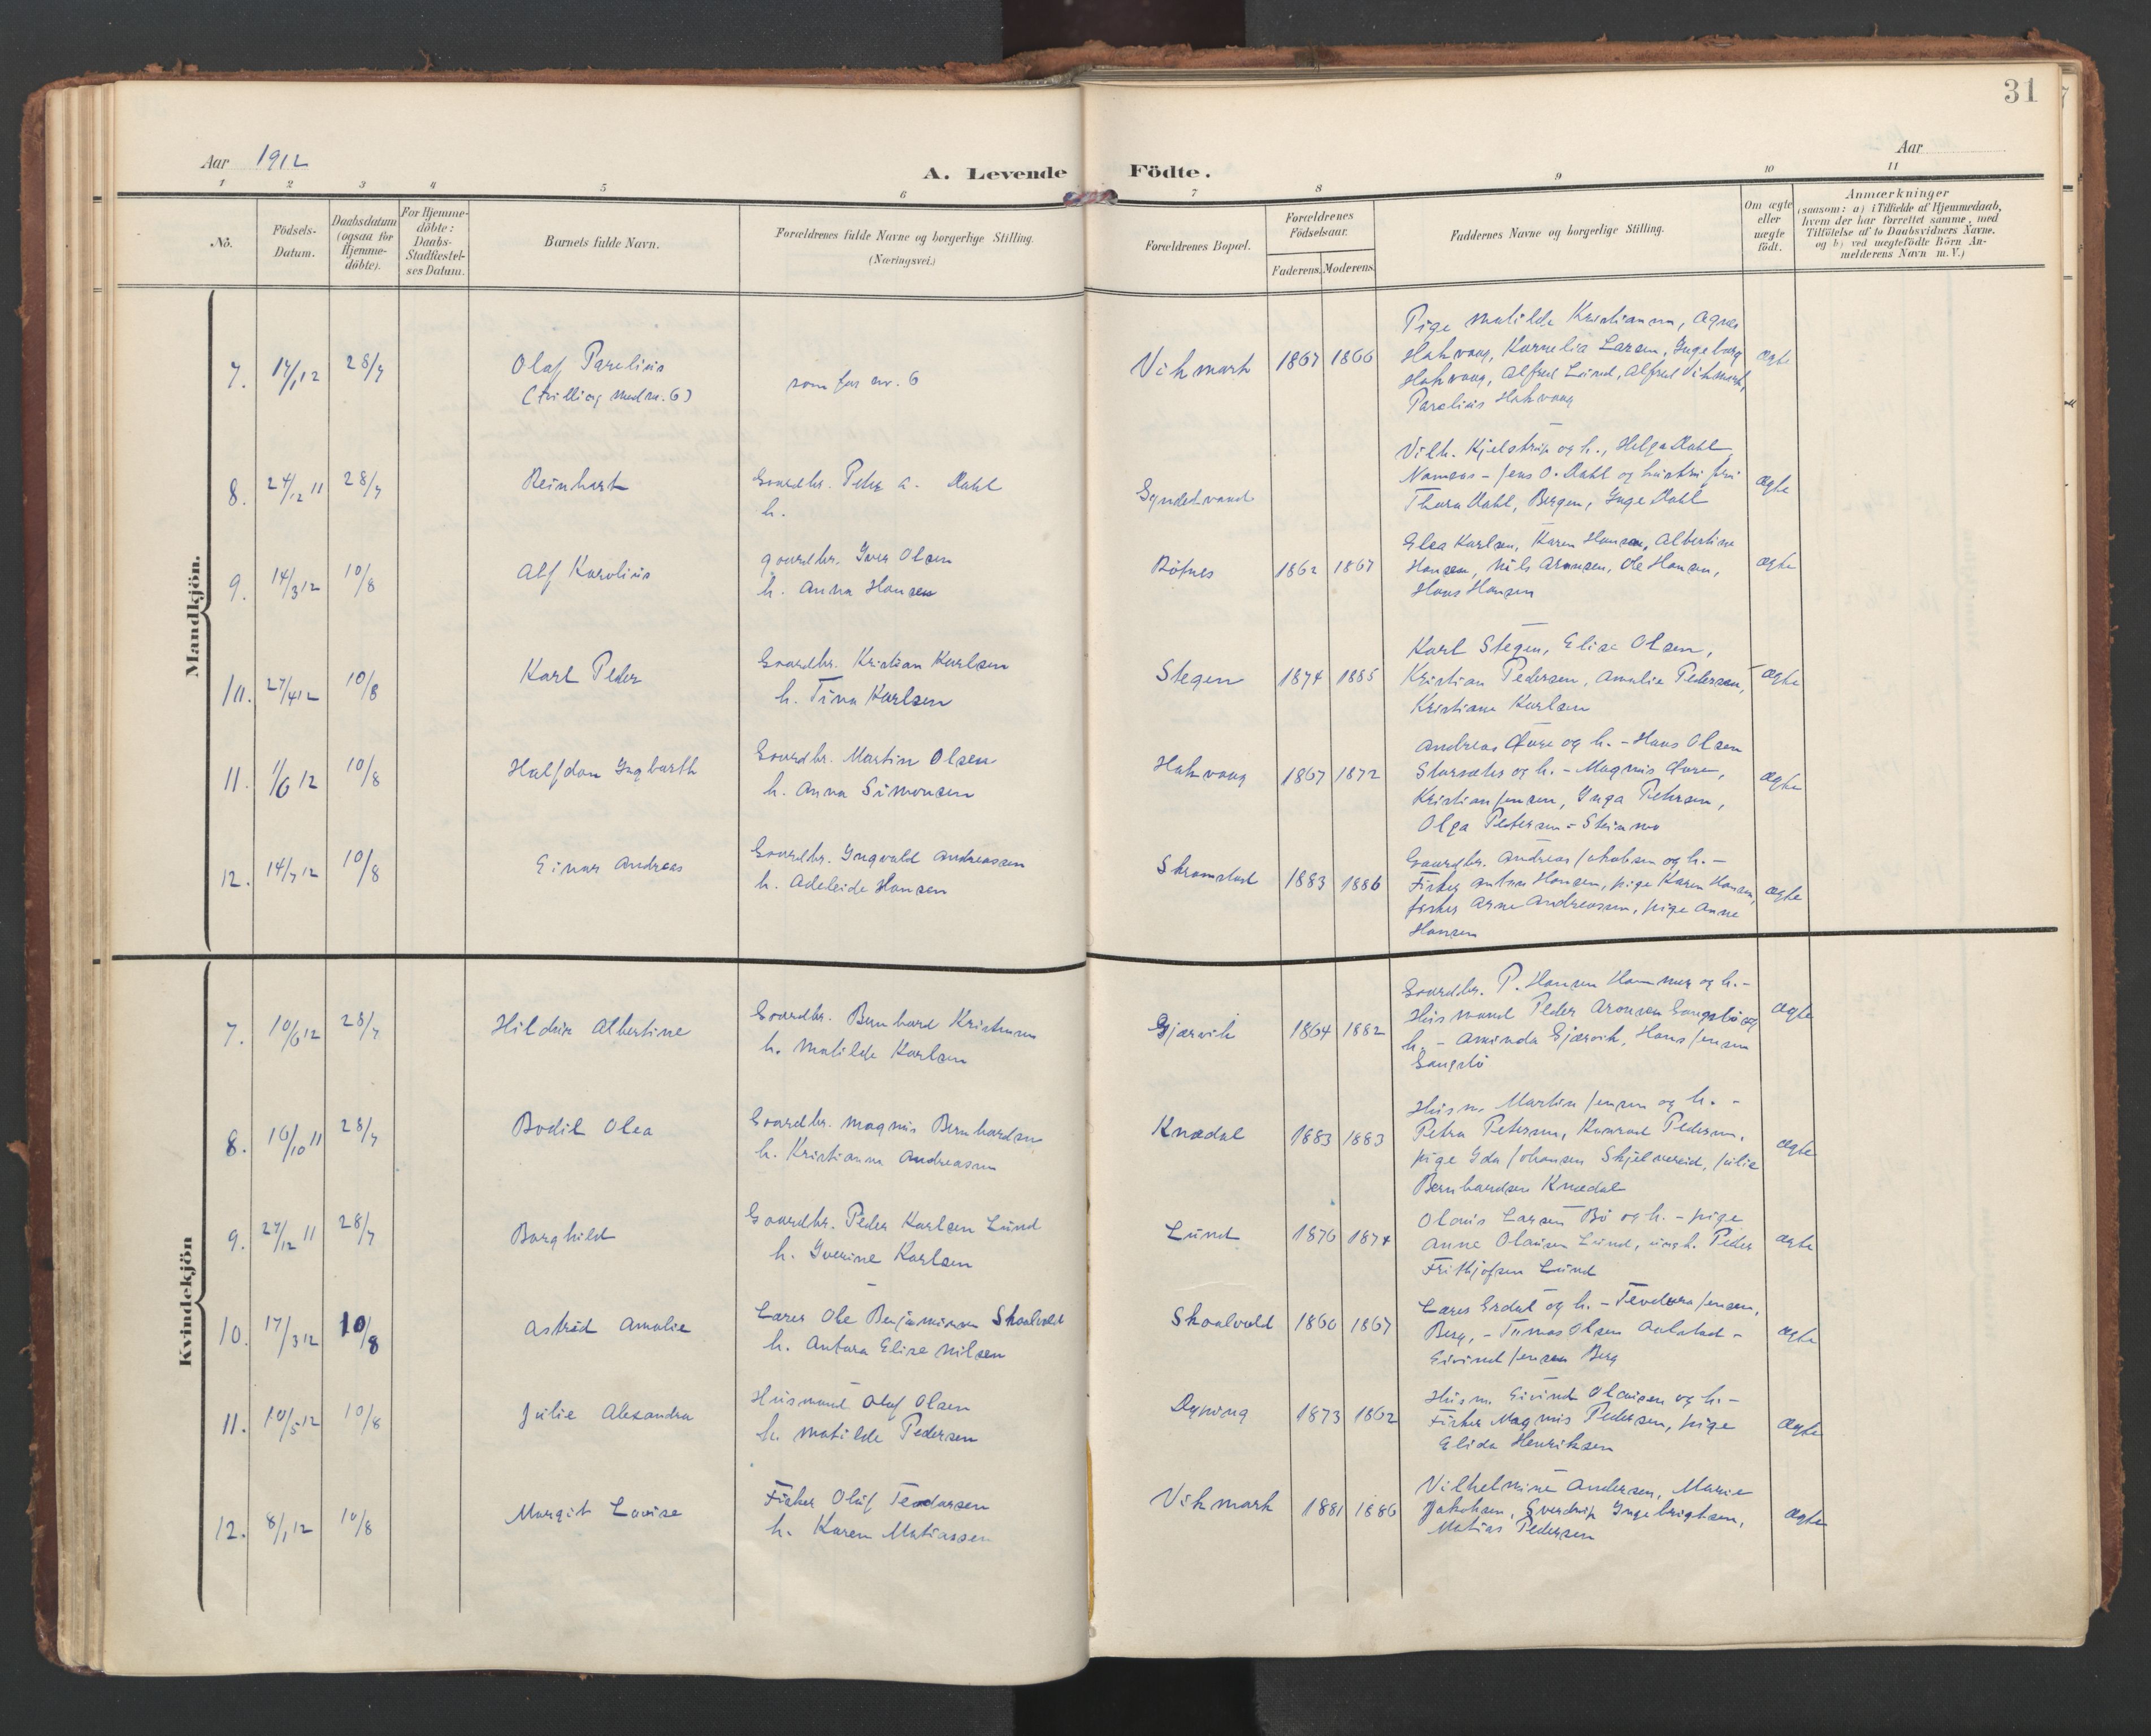 31
Aar 1912
Aar
A. Levende Födte.
1 2 3 4 5 6 7 8 9 10 11
No.
Födsels-
Datum.
Daabsdatum
(ogsaa for
Hjemme-
döbte).
For Hjemme-
döbte:
Daabs-
Stadfæstel-
ses Datum.
Barnets fulde Navn.
Forældrenes fulde Navne og borgerlige Stilling.
(Næringsvei.)
Forældrenes Bopæl.
Forældrenes
Födselsaar.
Faderens. Moderens.
Faddernes Navne og borgerlige Stilling.
Om ægte
eller
uægte
födt.
Anmærkninger
(saasom: a) i Tilfælde af Hjemmedaab,
hvem der har forrettet samme, med
Tilföielse af to Daabsvidners Navne.
og b) ved uægtefödte Börn An-
melderens Navn m. V.)
Mandkjön.
7. 17/1 12 28/7 Olaf Parelius som for nr. 6 Vikmark 1867 1866 ægte
(tvilling med nr. 6)
Pige Matilde Kristianna, Agnes
Hakvaag, Kornelia Larsen, Ingeborg
Hakvaag, Alfred Lund, Alfred Vikmark,
Parelius Hakvaag
8. 24/12 11 28/7 Reinhart Gaardbr. Peter A. Dahl ægte
h.
Vilh. Kjelstrup og h., Helga Dahl
Namsos - Jens O. Dahl og hustru fru
Thora Dahl, Bergen, Inge Dahl
9. 14/3 12 10/8 Alf Karolius gaardbr. Iver Olsen Böfnes 1862 1867 ægte
h. Anna Hansen
Elea Karlsen, Karen Hansen, Albertine
Hansen, Nils Aronsen, Ole Hansen,
Hans Hansen
10. 27/4 12 10/8 Karl Peder Gaardbr. Kristian Karlsen Stegen 1874 1885 ægte
h. Tina Karlsen
Karl Stegen, Elise Olsen,
Kristian Pedersen, Amalie Pedersen,
Kristiane Karlsen
11. 1/6 12 10/8 Halfdan Ingbarth Gaardbr. Martin Olsen Hakvaag 1867 1872 ægte
h. Anna Simonsen
Andreas og h. - Hans Olsen
Storsæter og h. - Magnus
Kristian Jensen, Inga Petersen,
Olga Petersen -
12. 14/7 12 10/8 Einar Andreas Gaardbr. Ingvald Andreassen Skromstad 1883 1886 ægte
h. Adeleide Hansen
Gaardbr. Andreas Jakobsen og h. -
Fisker Anton Hansen, pige Karen Hansen,
fisker Arne Andreassen, pige Anne
Hansen
Kvindekjön
7. 10/6 12 28/7 Hildur Albertine Gaardbr. Bernhard Kristensen Gjærvik 1864 1882 ægte
h. Matilde Karlsen
Gaardbr. P. Hansen Hammer og h. -
Husmand Peder Aronsen Gangstö og
h. - Aminda Gjærvik, Hans Jensen
Gangstö
8. 16/10 11 28/7 Bodil Olea Gaardbr. Magnus Bernhardsen Knædal 1883 1883 ægte
h. Kristianna Andreassen
Husm. Martin Jensen og h. -
Petra Petersen, Konrad Pedersen,
pige Ida Johansen Skjelvereid, Julie
Bernhardsen Knædal
9. 27/12 11 28/7 Borghild Gaardbr. Peder Karlsen Lund Lund 1876 1874 ægte
h. Iverine Karlsen
Olaus Larsen Bö og h. - pige
Anne Olausen Lund, ungk. Peder
Frithjofsen Lund
10. 17/3 12 10/8 Astrid Amalie Lærer Ole Benjaminsen Skaalvold Skaalvold 1860 1867 ægte
h. Antora Elise Nilsen
Lars Erdal og h. - Teodora Jensen,
Berg, - Tomas Olsen Aalstad -
Eivind Jensen Berg
11. 10/5 12 10/8 Julie Alexandra Husmand Oluf Olsen Dypvig 1873 1862 ægte
h. Matilde Pedersen
Husm. Eivind Olausen og h. -
Fisker Magnus Pedersen, pige
Elida Henriksen
12. 8/1 12 10/8 Margit Lovise Fisker Oluf Teodorsen Vikmark 1881 1886 ægte
h. Karen Matiassen
Vilhelmine Andersen, Marie
Jakobsen, Sverdrup Ingebrigtsen,
Matias Pedersen